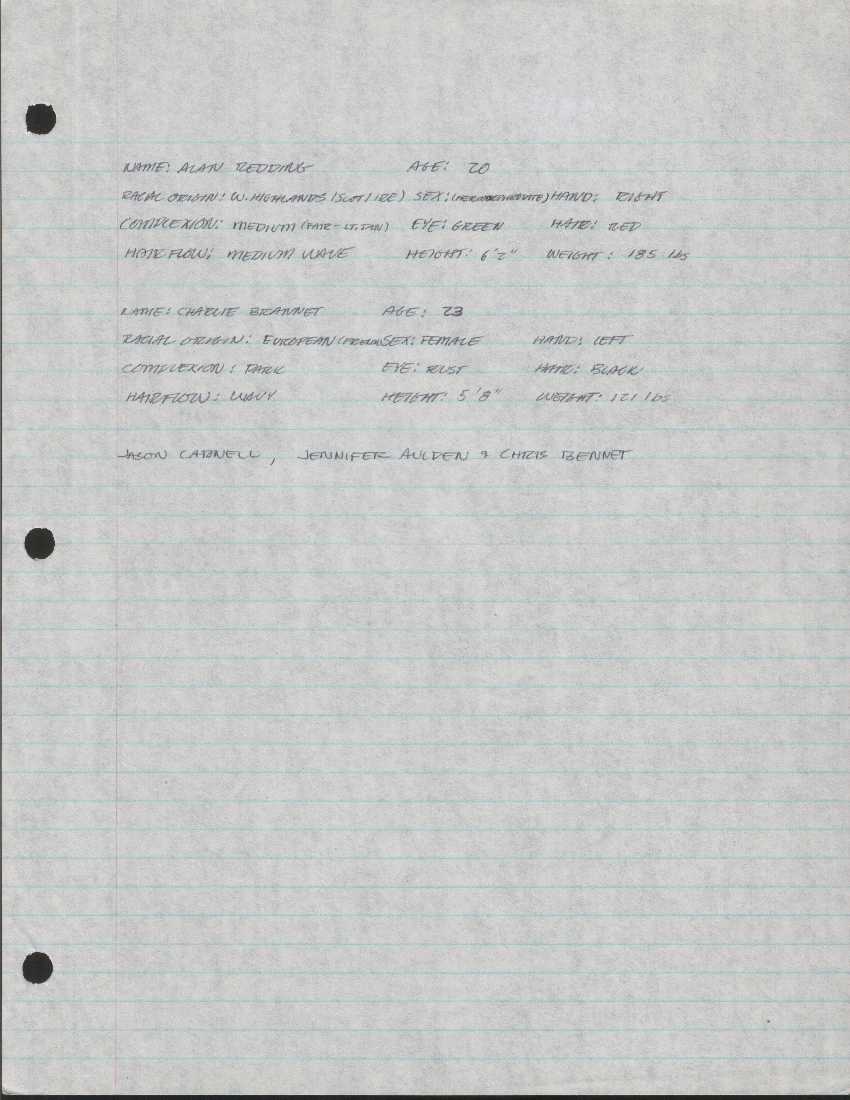 NAME: ALAN REDDING AGE: 20
RACIAL ORIGIN: W. HIGHLANDS (SCOT/IRE) SEX: (HERMAPHRODITE) HAND: RIGHT
COMPLEXION: MEDIUM (FAIR-LT. TAN) EYE: GREEN HAIR: RED
HAIR FLOW: MEDIUM WAVE HEIGHT: 6'2" WEIGHT: 185 lbs
NAME: CHARLIE BRANNET AGE: 23
RACIAL ORIGIN: EUROPEAN (FRENCH) SEX: FEMALE HAND: LEFT
COMPLEXION: DARK EYE: RUST HAIR: BLACK
HAIRFLOW: WAVY HEIGHT: 5'8" WEIGHT: 121 lbs
JASON CARNELL, JENNIFER AULDEN & CHRIS BENNET